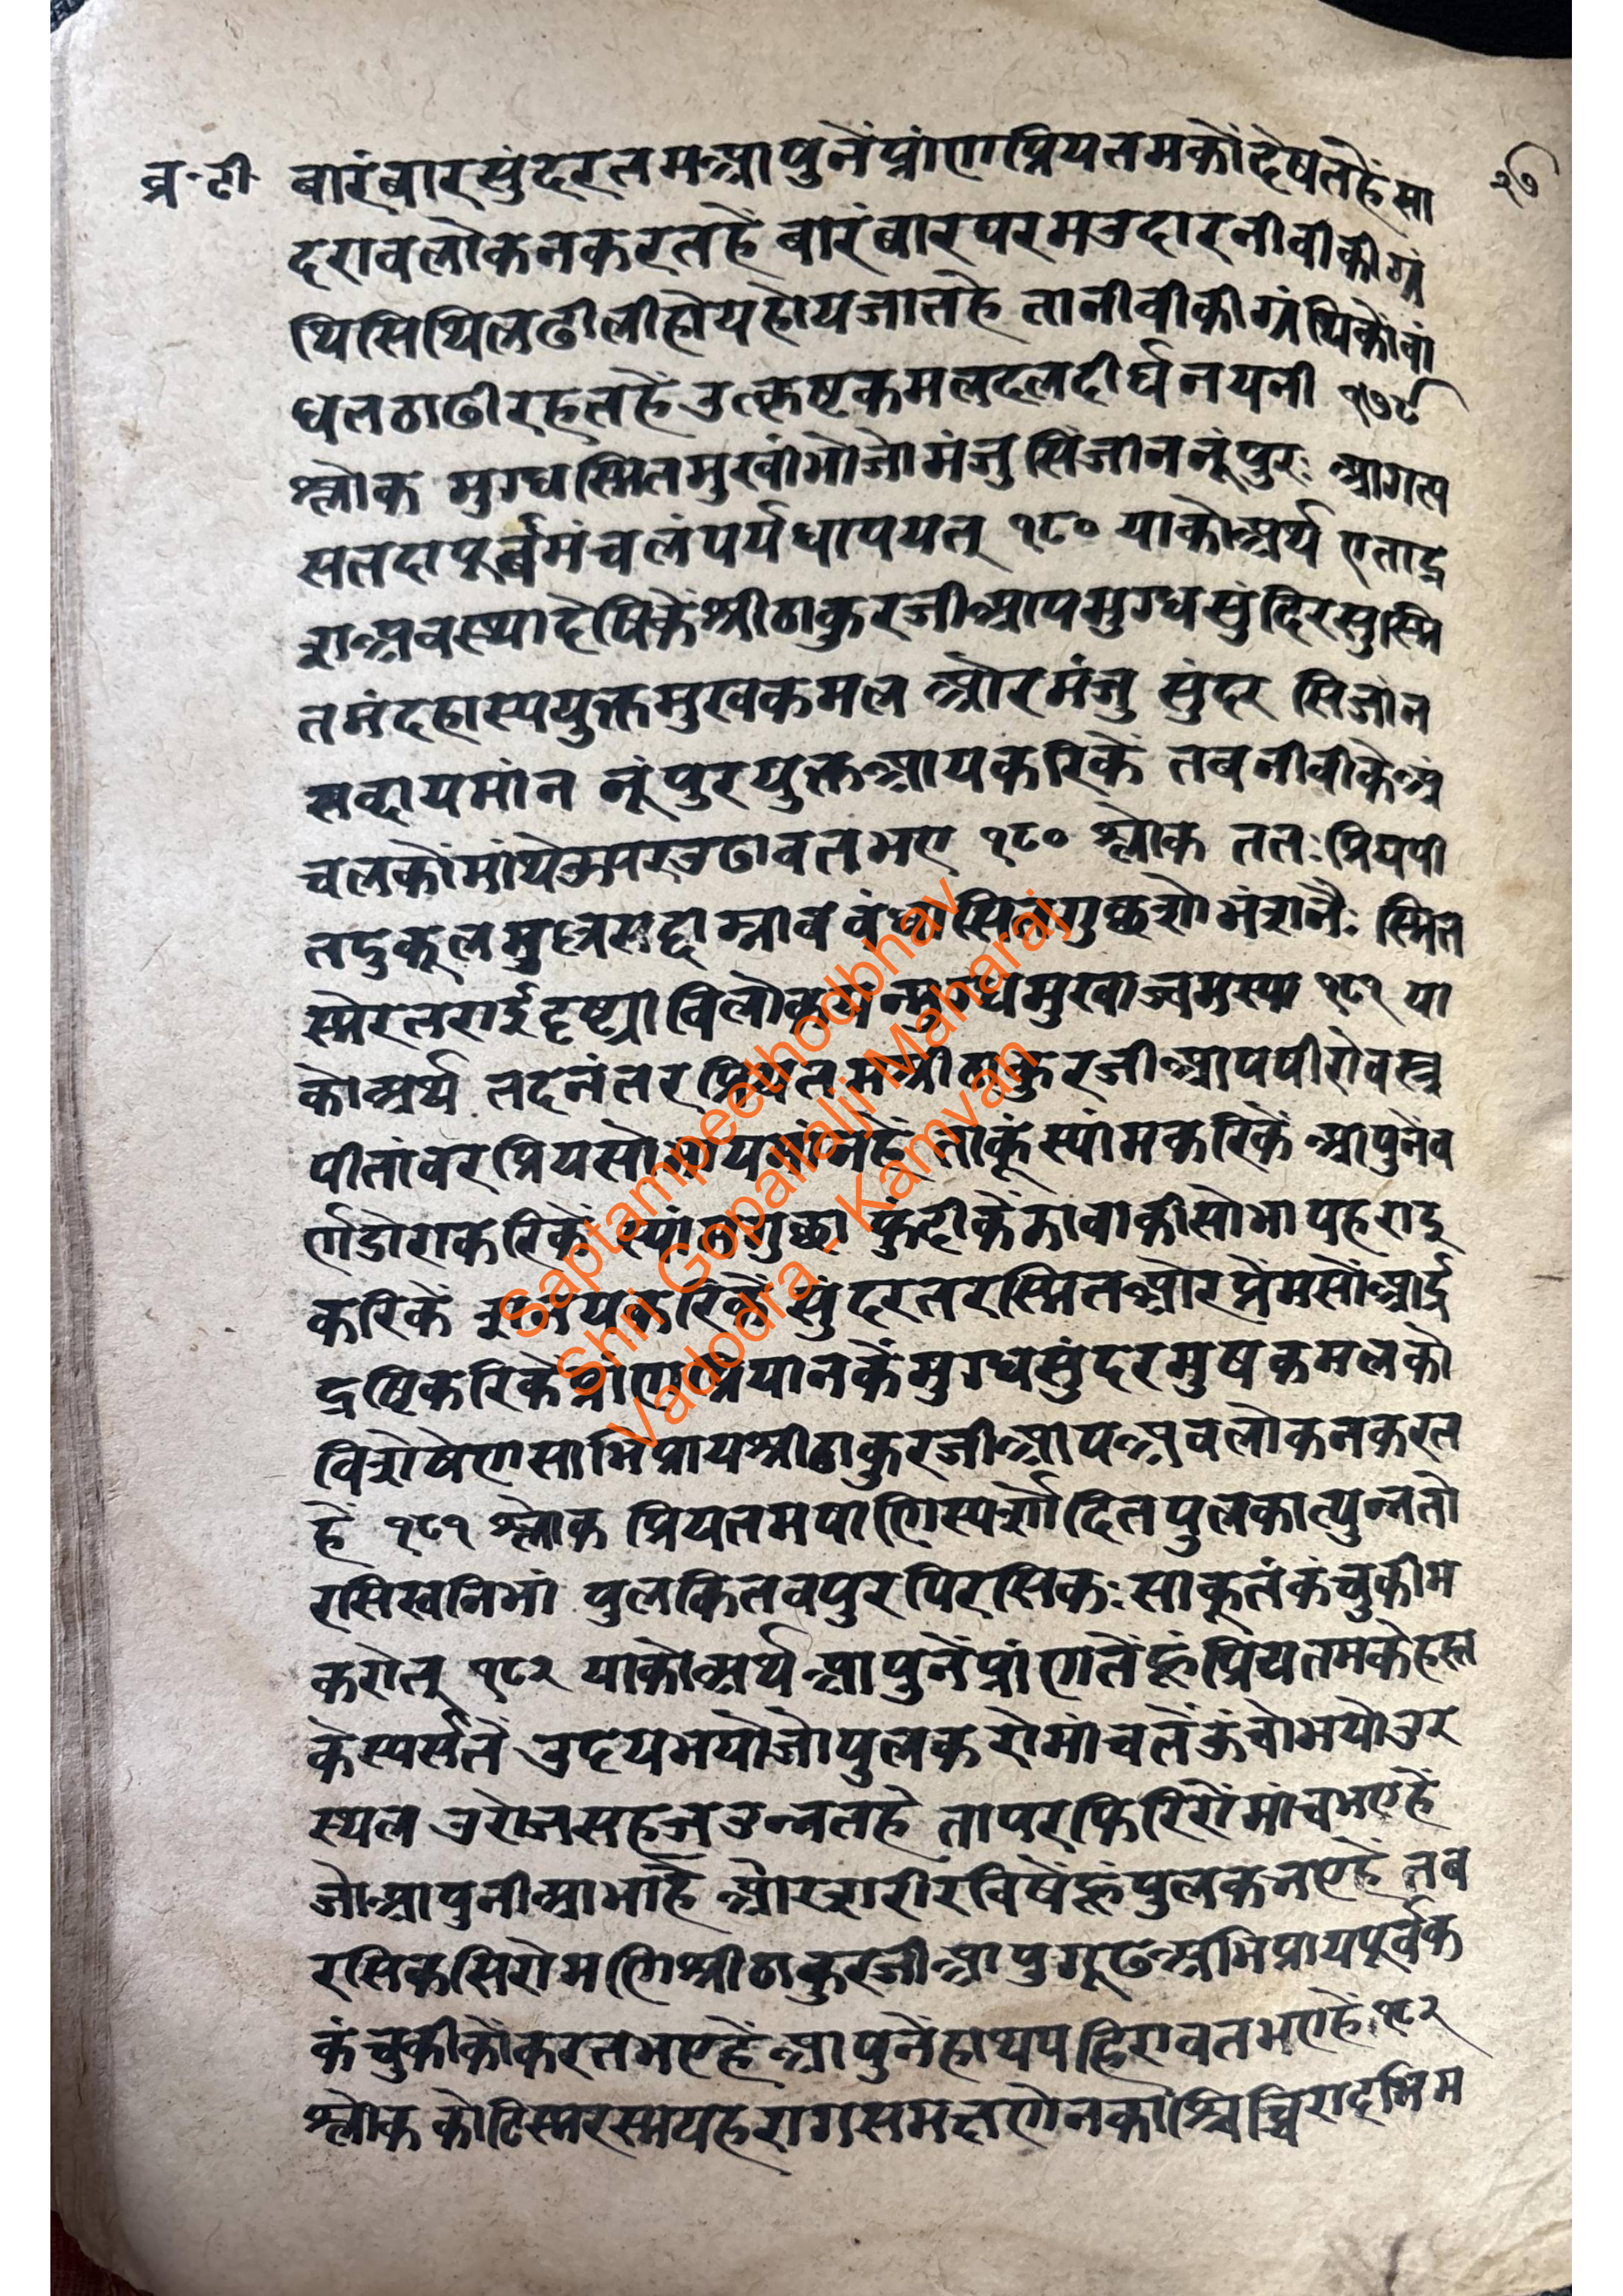 व्र.टी
२७
बारंबारसुंदरतमआपुनेंप्रांणप्रियतमकोंदेषतहेंसा
दरावलोकनकरतहें बारंबारपरमउदारनीवीकीग्रं
थिसिथिलढीलीहोयहोयजातहे तानीवीकीग्रंथिकोंवां
धतठाढीरहतहेंउत्कृष्टकमलदलदीर्घनयनी १७९
श्लोक मुग्धस्मितमुखांभोजोमंजुसिंजाननूंपुरः आगत्य
सतदापूर्वमंचलंपर्यधापयत् १८० याकोअर्थ एताद्र
शअवस्थादेषिकेंश्रीठाकुरजीआपमुग्धसुंदिरसुस्मि
तमंदहास्ययुक्तमुखकमल औरमंजु सुंदर सिजांन
सब्दायमांन नूंपुरयुक्तआयकरिकें तवनीवीकेअं
चलकोंमांथेऊपरउढावतभए १८० श्लोक ततःप्रियपी
तदुकूल स्मित
विलो १८१ या
कोअर्थ तदनंतरप्रियतमश्रीठाकुरजीआपपीरोवस्त्र
पीतांवरप्रियसोभायमांनहें ताकूंस्यांमकरिकें आपुनेंव
र्णडोराकरिकें स्यांमगुछा फुंदीकें सोभा
करिकें सुंदरतरस्मितऔरप्रेमसोंआर्द्र
द्रष्टिकरिकेंप्रांणप्रियानकेंमुग्धसुंदरमुषकमलकों
विशेषेणसाभिप्रायश्रीठाकुरजीआपअवलोकनकरत
हें १८१ श्लोक प्रियतमपाणिस्पर्शोदितपुलकात्युन्नतो
रसि पुलकितवपुरपिरसिकःसाकूतंकंचुकीम
करोत् १८२ याकोअर्थ आपुनेंप्रांणतेंहूंप्रियतमकेहस्त
केस्पर्सतें उदयभयोजोपुलकरोमांचतेंऊंचोभयोउर
स्थल उरोजसहजउन्नतहे तापरफिरिरोंमांचभएहें
जोआपुनीआभाहें औरशरीरविषेंहूंपुलकनएहें तब
रसिकसिरोमणिश्रीठाकुरजीआपुगूढअभिप्रायपूर्वक
कंचुकीकोंकरतभएहेंआपुनेंहाथपहिरावतभएहें१८२
श्लोक कोटिस्मरस्मयहरागसमक्षणेनकाश्चिच्चिरादभिम
Saptampeethodbhav
Shri Gopallalji Maharaj
Vadodra - Kamvan